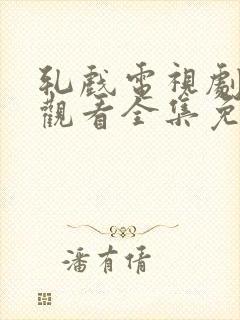 乳戲電視劇
觀看全集免
潘有倩